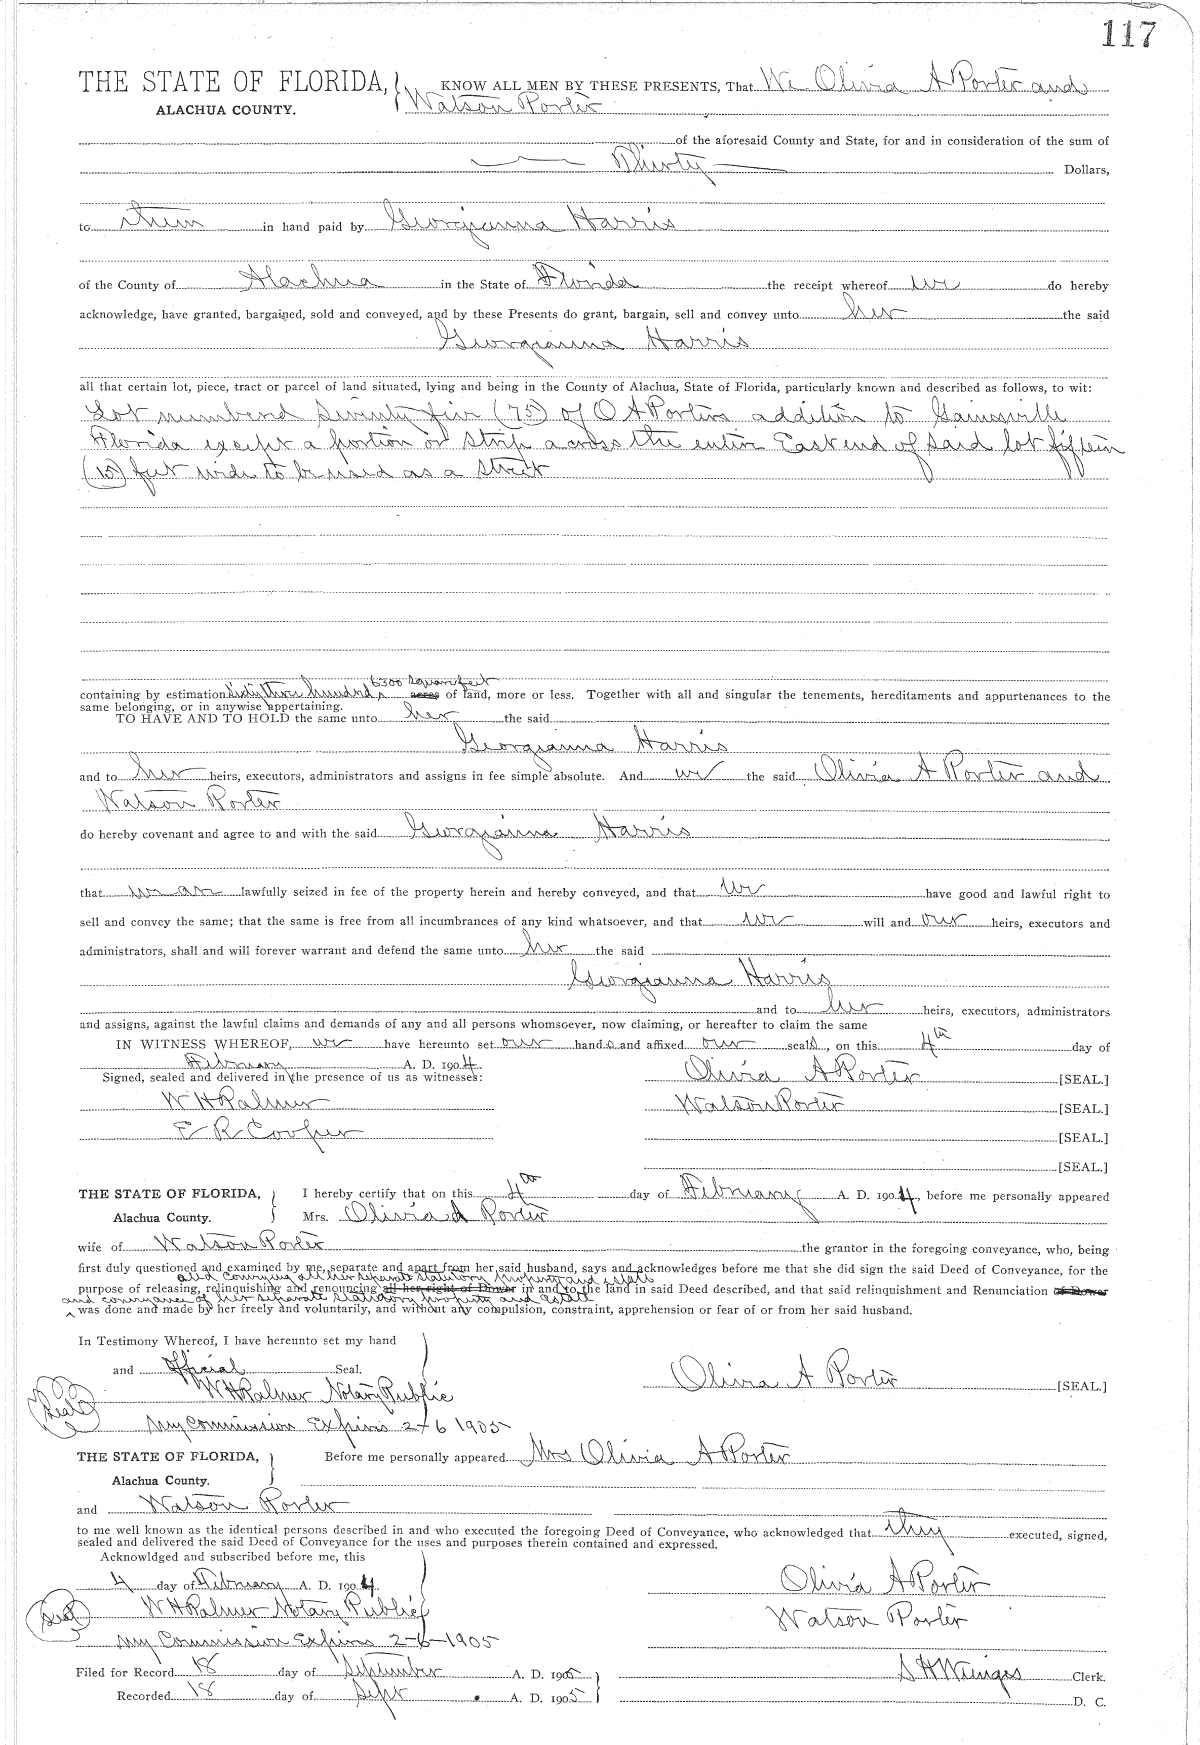 117
THE STATE OF FLORIDA, KNOW ALL MEN BY THESE PRESENTS, That We Olivia A Porter and
ALACHUA COUNTY. Watson Porter
of the aforesaid County and State, for and in consideration of the sum of
Thirty Dollars,
to them in hand paid by Georgianna Harris
of the County of Alachua in the State of Florida the receipt whereof we do hereby
acknowledge, have granted, bargained, sold and conveyed, and by these Presents do grant, bargain, sell and convey unto her the said
Georgianna Harris
all that certain lot, piece, tract or parcel of land situated, lying and being in the County of Alachua, State of Florida, particularly known and described as follows, to wit:
Lot numbered Seventy five (75) of O A Porters addition to Gainesville
Florida except a portion or strip across the entire East end of said lot fifteen
(15) feet wide to be used as a street
6300 square feet
containing by estimation sixty three hundred acres of land, more or less. Together with all and singular the tenements, hereditaments and appurtenances to the
same belonging, or in anywise appertaining.
TO HAVE AND TO HOLD the same unto her the said
Georgianna Harris
and to her heirs, executors, administrators and assigns in fee simple absolute. And we the said Olivia A Porter and
Watson Porter
do hereby covenant and agree to and with the said Georgianna Harris
that we are lawfully seized in fee of the property herein and hereby conveyed, and that we have good and lawful right to
sell and convey the same; that the same is free from all incumbrances of any kind whatsoever, and that we will and our heirs, executors and
administrators, shall and will forever warrant and defend the same unto her the said
Georgianna Harris
and to her heirs, executors, administrators
and assigns, against the lawful claims and demands of any and all persons whomsoever, now claiming, or hereafter to claim the same
IN WITNESS WHEREOF, we have hereunto set our hands and affixed our seals, on this 4th day of
February A. D. 1904.
Signed, sealed and delivered in the presence of us as witnesses: Olivia A Porter [SEAL.]
W H Palmer Watson Porter [SEAL.]
E R Cooper [SEAL.]
[SEAL.]
THE STATE OF FLORIDA, I hereby certify that on this 4th day of February A. D. 1904, before me personally appeared
Alachua County. Mrs. Olivia A Porter
wife of Watson Porter the grantor in the foregoing conveyance, who, being
first duly questioned and examined by me, separate and apart from her said husband, says and acknowledges before me that she did sign the said Deed of Conveyance, for the
and conveying all her separate statutory property and estate
purpose of releasing, relinquishing and renouncing all her right of Dower in and to the land in said Deed described, and that said relinquishment and Renunciation of Dower
and conveyance of her separate statutory property and estate
was done and made by her freely and voluntarily, and without any compulsion, constraint, apprehension or fear of or from her said husband.
In Testimony Whereof, I have hereunto set my hand
and official Seal. Olivia A Porter [SEAL.]
Seal W H Palmer Notary Public
My Commission Expires 2-6 1905
THE STATE OF FLORIDA, Before me personally appeared Mrs Olivia A Porter
Alachua County.
and Watson Porter
to me well known as the identical persons described in and who executed the foregoing Deed of Conveyance, who acknowledged that they executed, signed,
sealed and delivered the said Deed of Conveyance for the uses and purposes therein contained and expressed.
Acknowldged and subscribed before me, this
4 day of February A. D. 1904. Olivia A Porter
Seal W H Palmer Notary Public Watson Porter
My Commission Expires 2-6-1905
Filed for Record 18 day of September A. D. 1905 S H Wienges Clerk.
Recorded 18 day of Sept A. D. 1905 D. C.